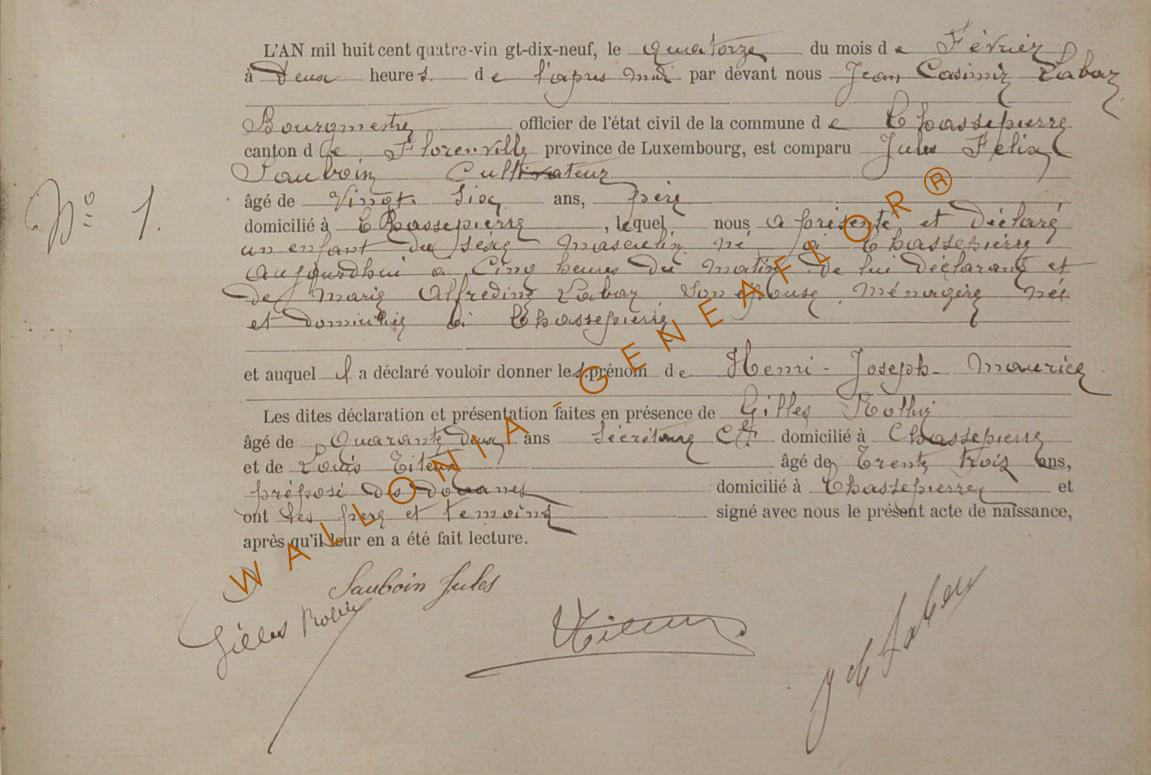 L'AN mil huit cent quatre-vin gt-dix-neuf, le quatorze du mois d e Février
à Deux heure s. d e l'apres midi par devant nous Jean Casimir Labar
Bourgmestre officier de l'état civil de la commune d e Chassepierre
canton d e Florenville province de Luxembourg, est comparu Jules Felix
Sauboin Cultivateur
N° 1.
âgé de Vingt Six ans, père
domicilié à Chassepierre , lequel nous a présenté et déclaré
un enfant du sexe masculin né à Chassepierre
aujourdhui a Cinq heures du matin de lui déclarant et
de Marie Alfredine Labar Son épouse ménagère née
et domiciliée à Chassepierre
et auquel il a déclaré vouloir donner les prénom de Henri - Joseph - Maurice
Les dites déclaration et présentation faites en présence de Gilles
âgé de Quarante deux ans Secrétaire Cal domicilié à Chassepierre
et de Louis âgé de Trente trois ans,
préposé des douanes domicilié à Chassepierre et
ont les père et temoins signé avec nous le présent acte de naissance,
après qu'il leur en a été fait lecture.
Sauboin Jules
Gilles
WALLONIA - GENEAFLOR ®